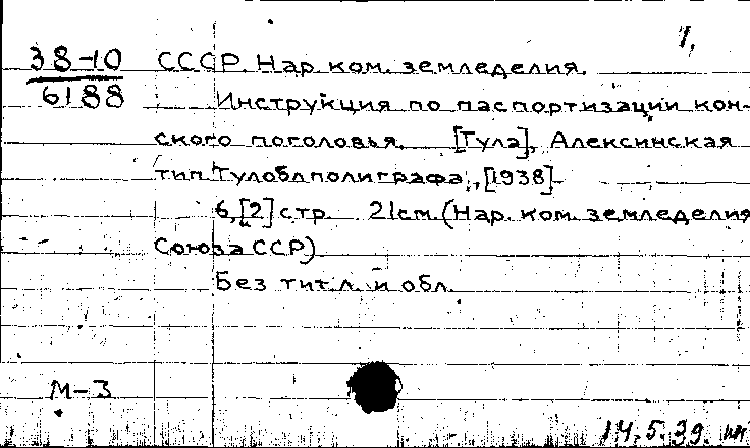 1,
38-10 СССР. Нар. ком. земледелия.
6188 Инструкция по паспортизации кон-
ского поголовья. [Тула], Алексинская
тип. Тулоблполиграфа, [1938].
6, [2] стр. 21 см. (Нар. ком. земледелия
Союза ССР)
Без тит. л. и обл.
М-3
14.5.39